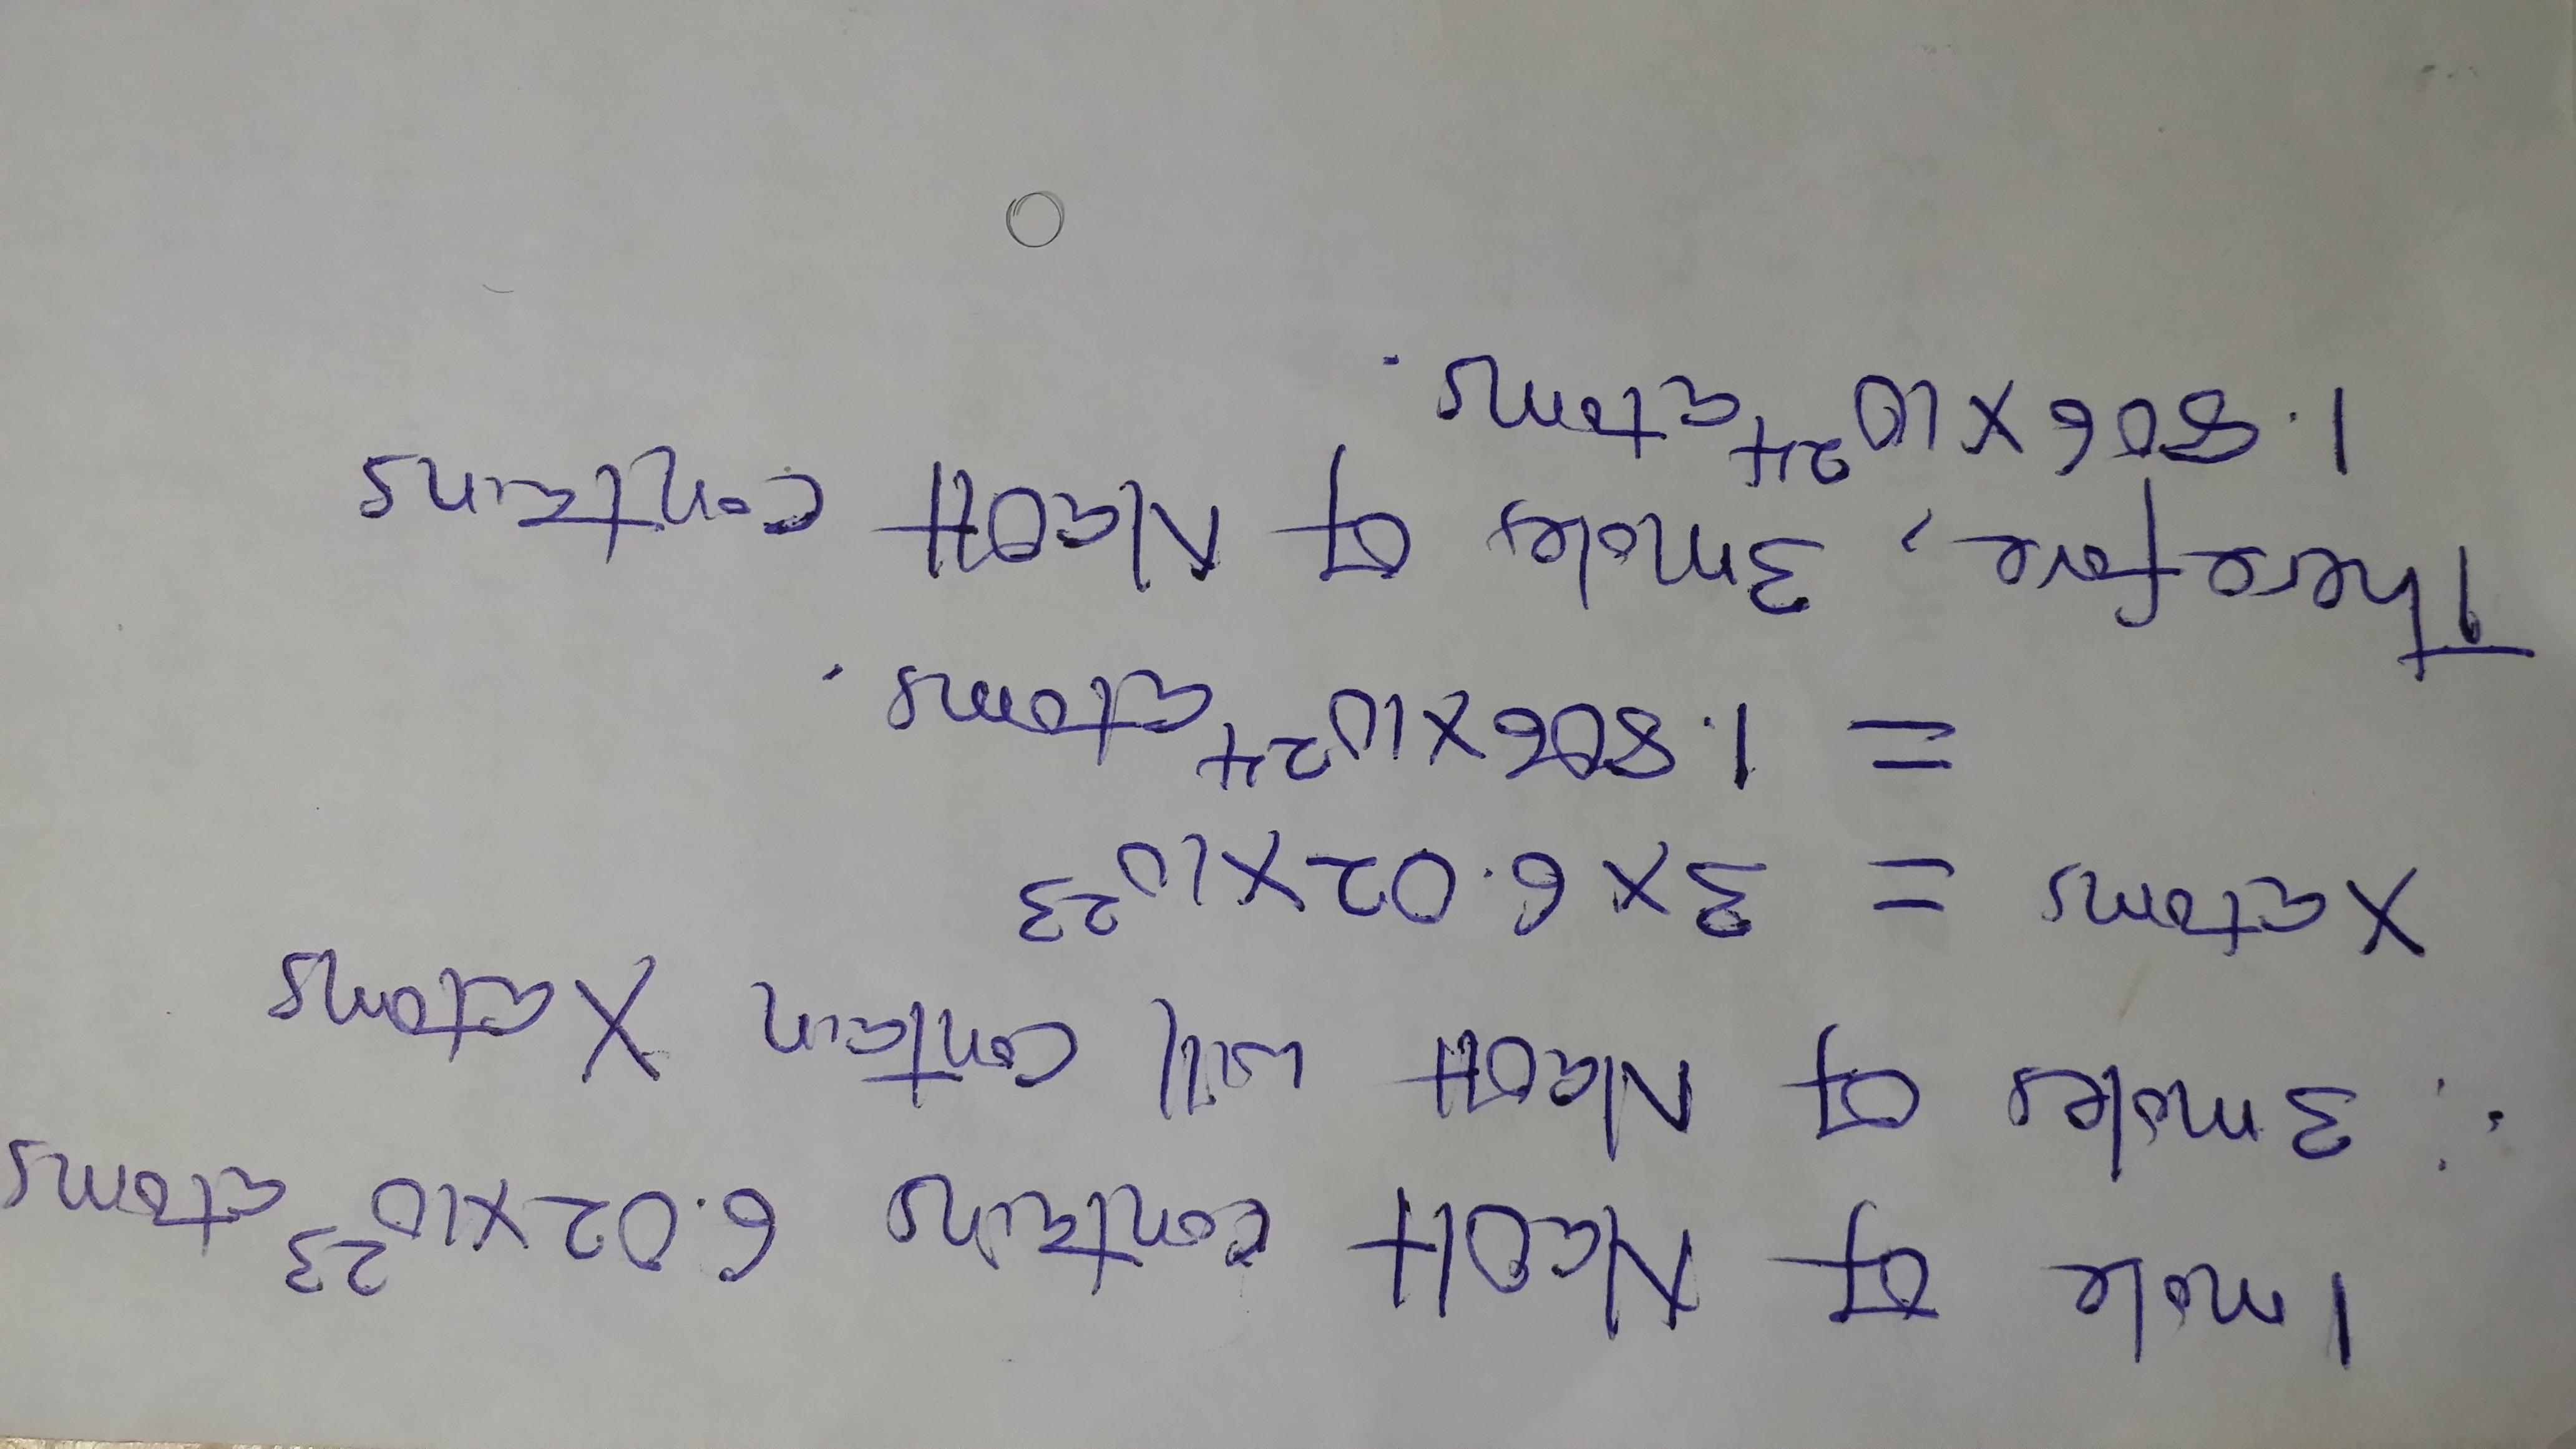 1 mole of NaOH contains 6.02x10²³ atoms
∴ 3 moles of NaOH will contain X atoms
X atoms = 3x6.02x10²³
= 1.806x10²⁴ atoms.
Therefore, 3moles of NaOH contains
1.806x10²⁴ atoms.